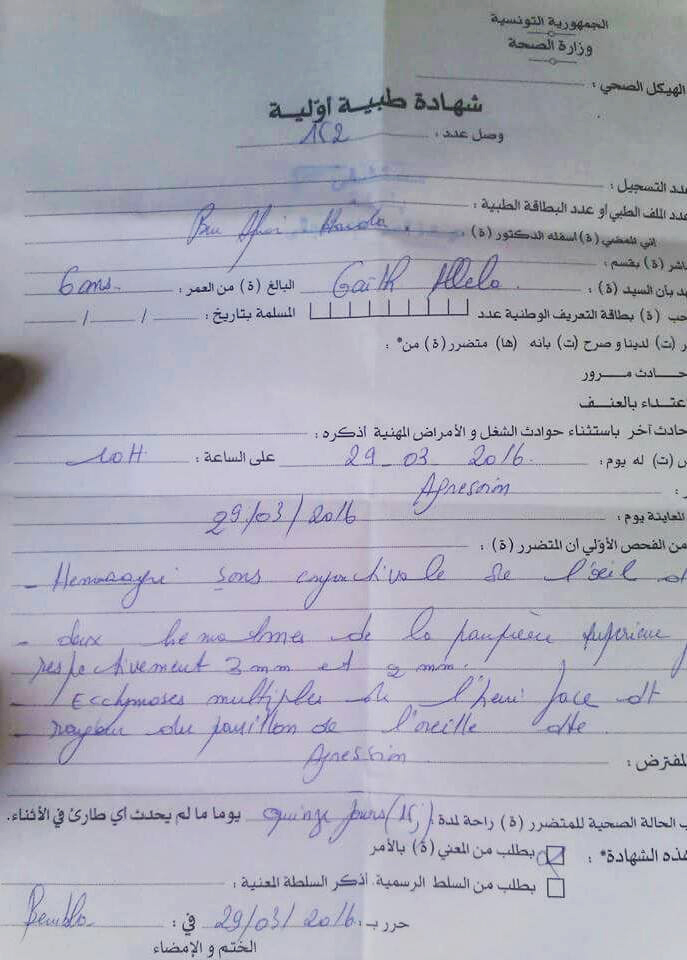 الجمهورية التونسية
وزارة الصحة
الهيكل الصحي :
شهادة طبية أوّلية
وصل عدد : 152
مستشفى
عدد التسجيل :
عدد الملف الطبي أو عدد البطاقة الطبية :
إني الممضي (ة) أسفله الدكتور (ة) : Ben
باشر (ة) بقسم :
هد بأن السيد (ة) : Gaith البالغ (ة) من العمر : 6 ans.
حب (ة) بطاقة التعريف الوطنية عدد المسلمة بتاريخ : / / 
ر (ت) لدينا و صرح (ت) بانه (ها) متضرر (ة) من* :
حادث مرور
عتداء بالعنف
حادث آخر باستثناء حوادث الشغل و الأمراض المهنية أذكره :
ض (ت) له يوم : 29 - 03 - 2016. على الساعة : 10H
: Agression
المعاينة يوم : 29/03/2016
من الفحص الأوّلي أن المتضرر (ة) :
- Hemorragie sous conjonctivale de l'œil d
- deux hematomes de la paupière superieure
respectivement 3 mm et 2 mm.
- Ecchymoses multiples de l'hemi face dt
du pavillon de l'oreille dte
المفترض : Agression
ب الحالة الصحية للمتضرر (ة) راحة لمدة : quinze jours (15j) يوما ما لم يحدث أي طارئ في الأثناء.
هذه الشهادة* : بطلب من المعني (ة) بالأمر
بطلب من السلط الرسمية. أذكر السلطة المعنية :
حرر بـ : 29/03/2016 في : Bembla
الختم و الإمضاء